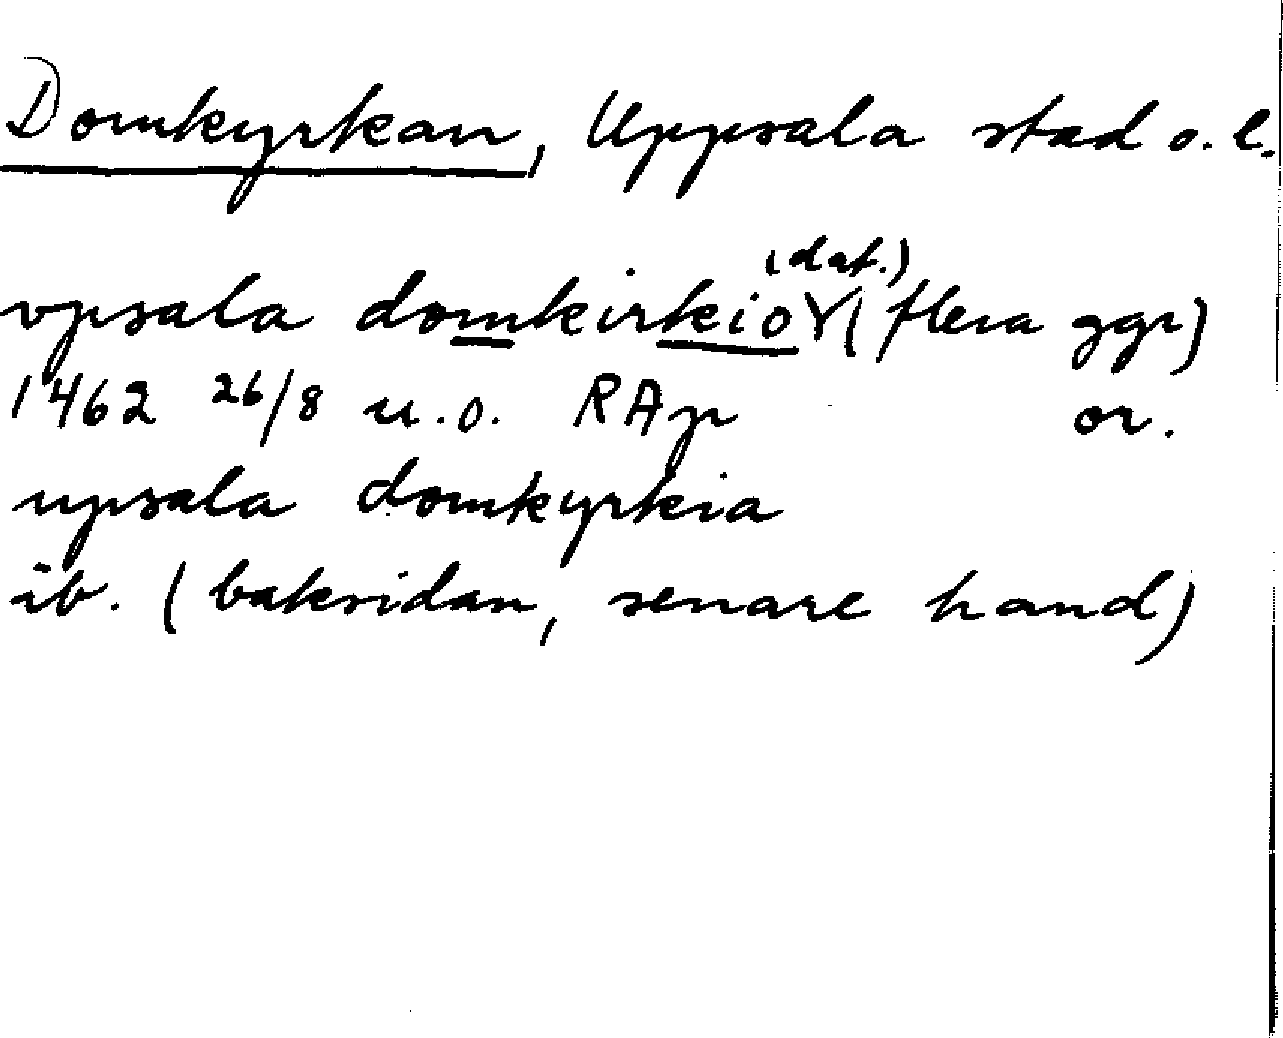 Domkyrkan, Uppsala stad o. l.
vpsala domkirkio (dat.) (flera ggr)
1462 26/8 u.o. RAp or.
upsala domkyrkia
ib. (baksidan, senare hand)